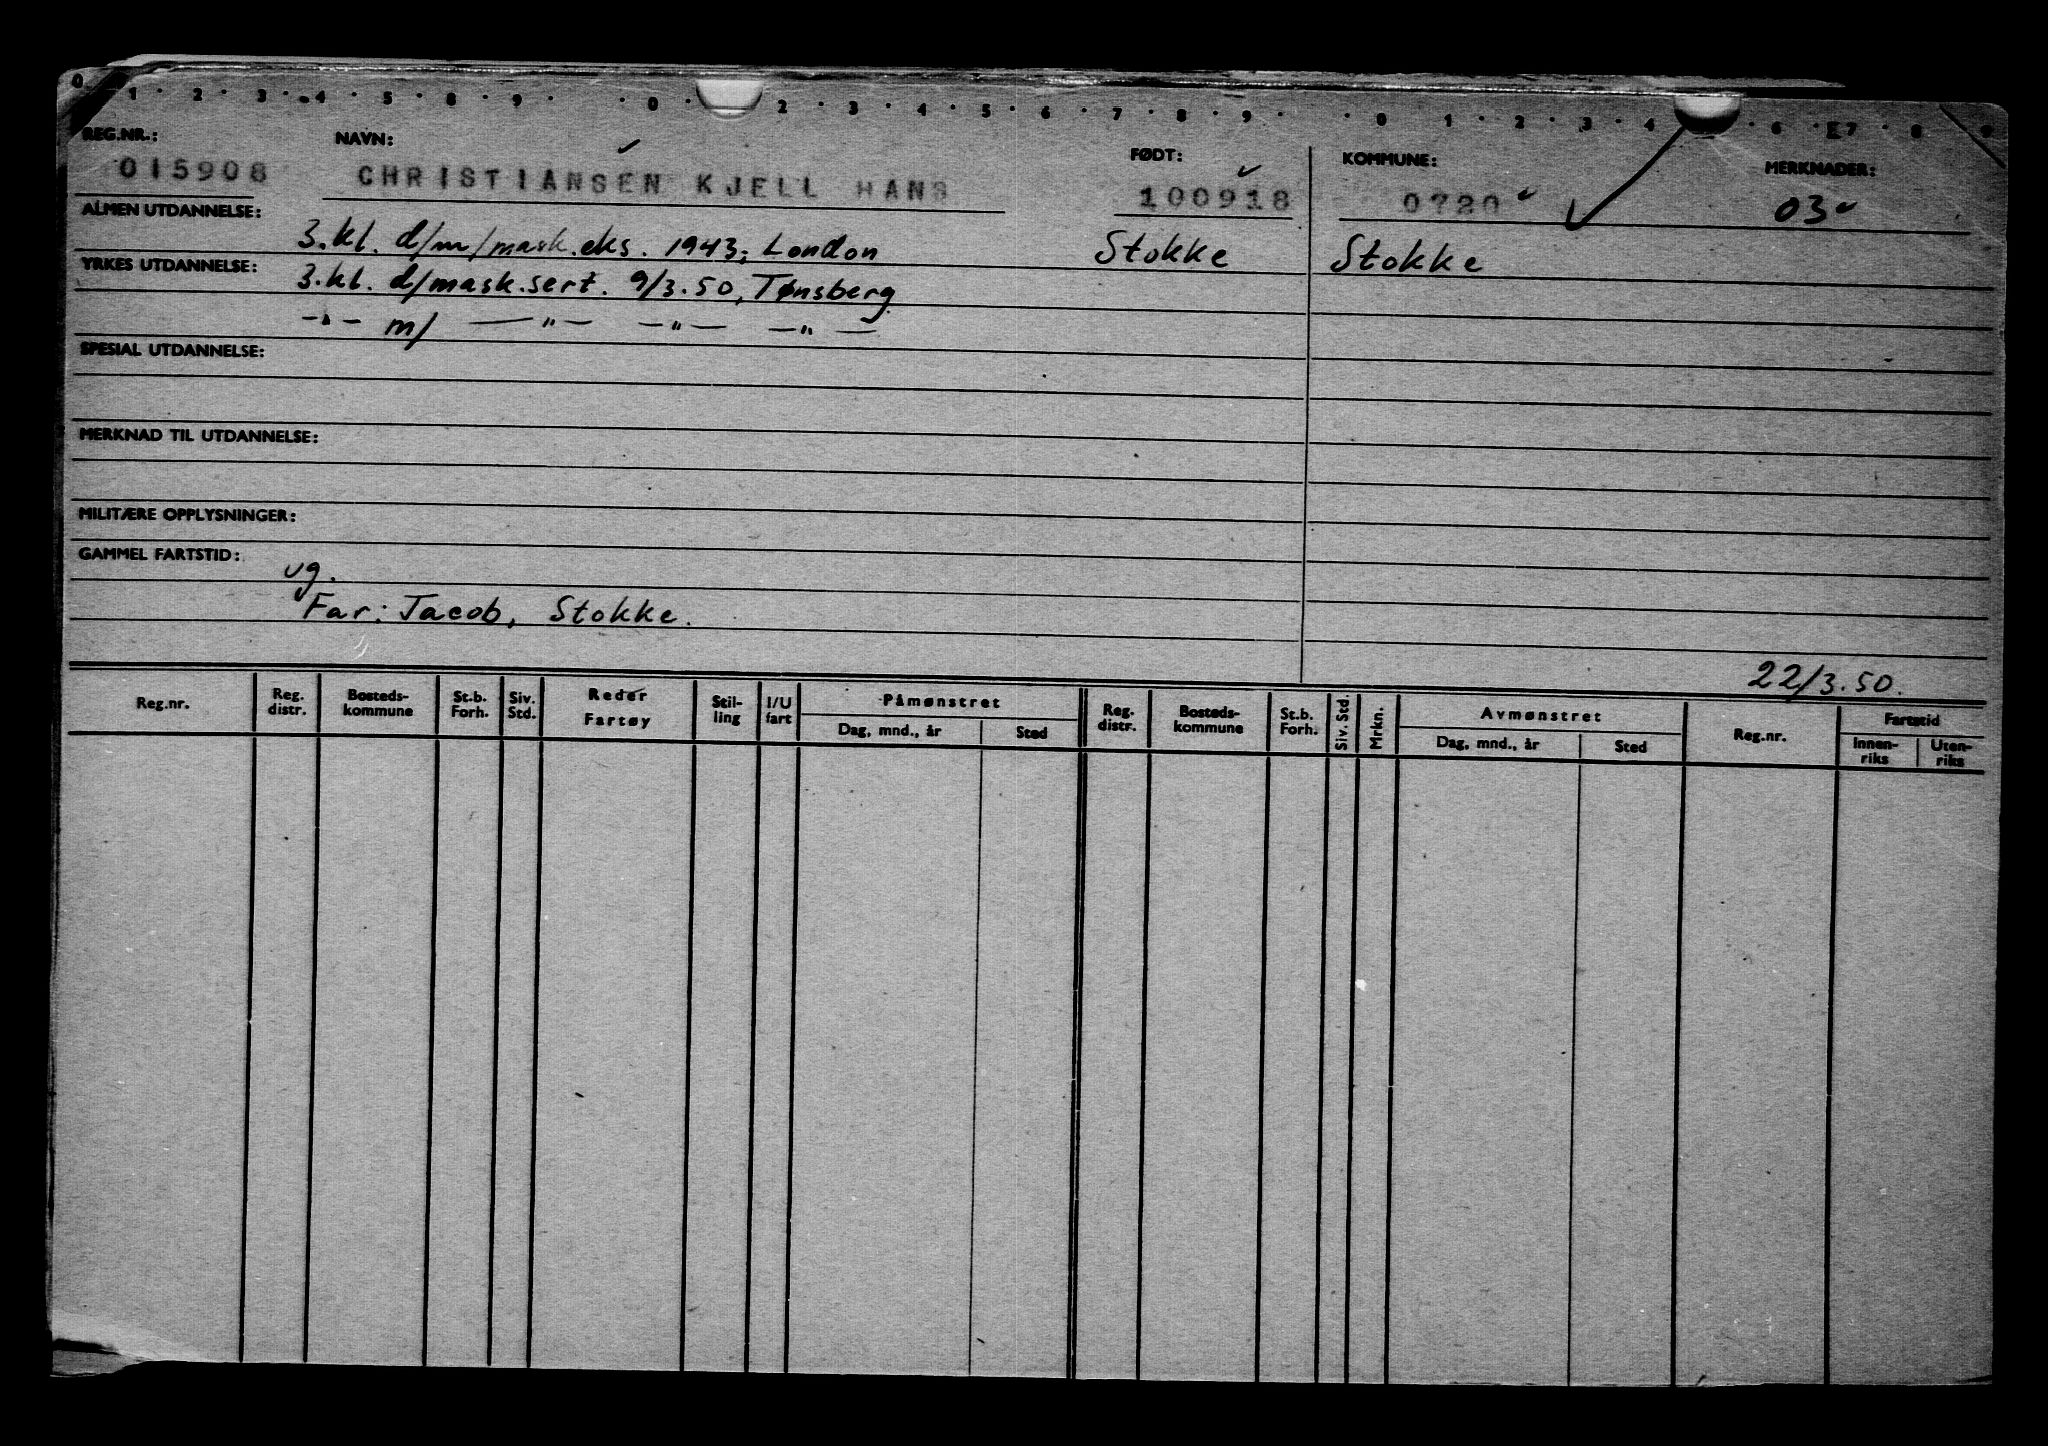 0 1 2 3 4 5 8 9 0 2 3 4 5 6 7 8 9 0 1 2 3 4 6 7 8 9
REG.NR.: NAVN: FØDT: KOMMUNE: MERKNADER:
015908 CHRISTIANSEN KJELL HANS 100918 0720 03
ALMEN UTDANNELSE: 3.kl. d/m/mask.eks. 1943, London Stokke Stokke
YRKES UTDANNELSE: 3.kl. d/mask.sert. 9/3.50, Tønsberg
-"- m/ -"- -"- -"-
SPESIAL UTDANNELSE:
MERKNAD TIL UTDANNELSE:
MILITÆRE OPPLYSNINGER:
GAMMEL FARTSTID:
ug.
Far: Jacob, Stokke.
22/3.50.
Reg.nr. Reg. distr. Bosteds-kommune St.b. Forh. Siv. Std. Reder Fartøy Stil-ling I/U fart Påmønstret Dag, mnd., år Sted Reg. distr. Bosteds-kommune St.b. Forh. Siv. Std. Mrkn. Avmønstret Dag, mnd., år Sted Reg.nr. Fartstid Innen-riks Uten-riks